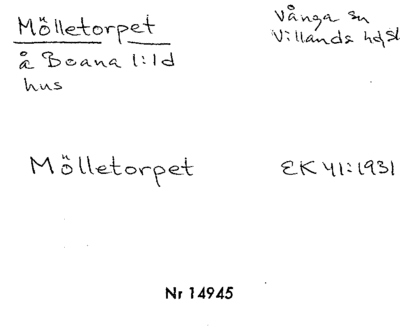 Mölletorpet
Vånga sn
Villands hd Sk
å Boana 1:1d
hus
Mölletorpet
EK 41:1931
Nr 14945